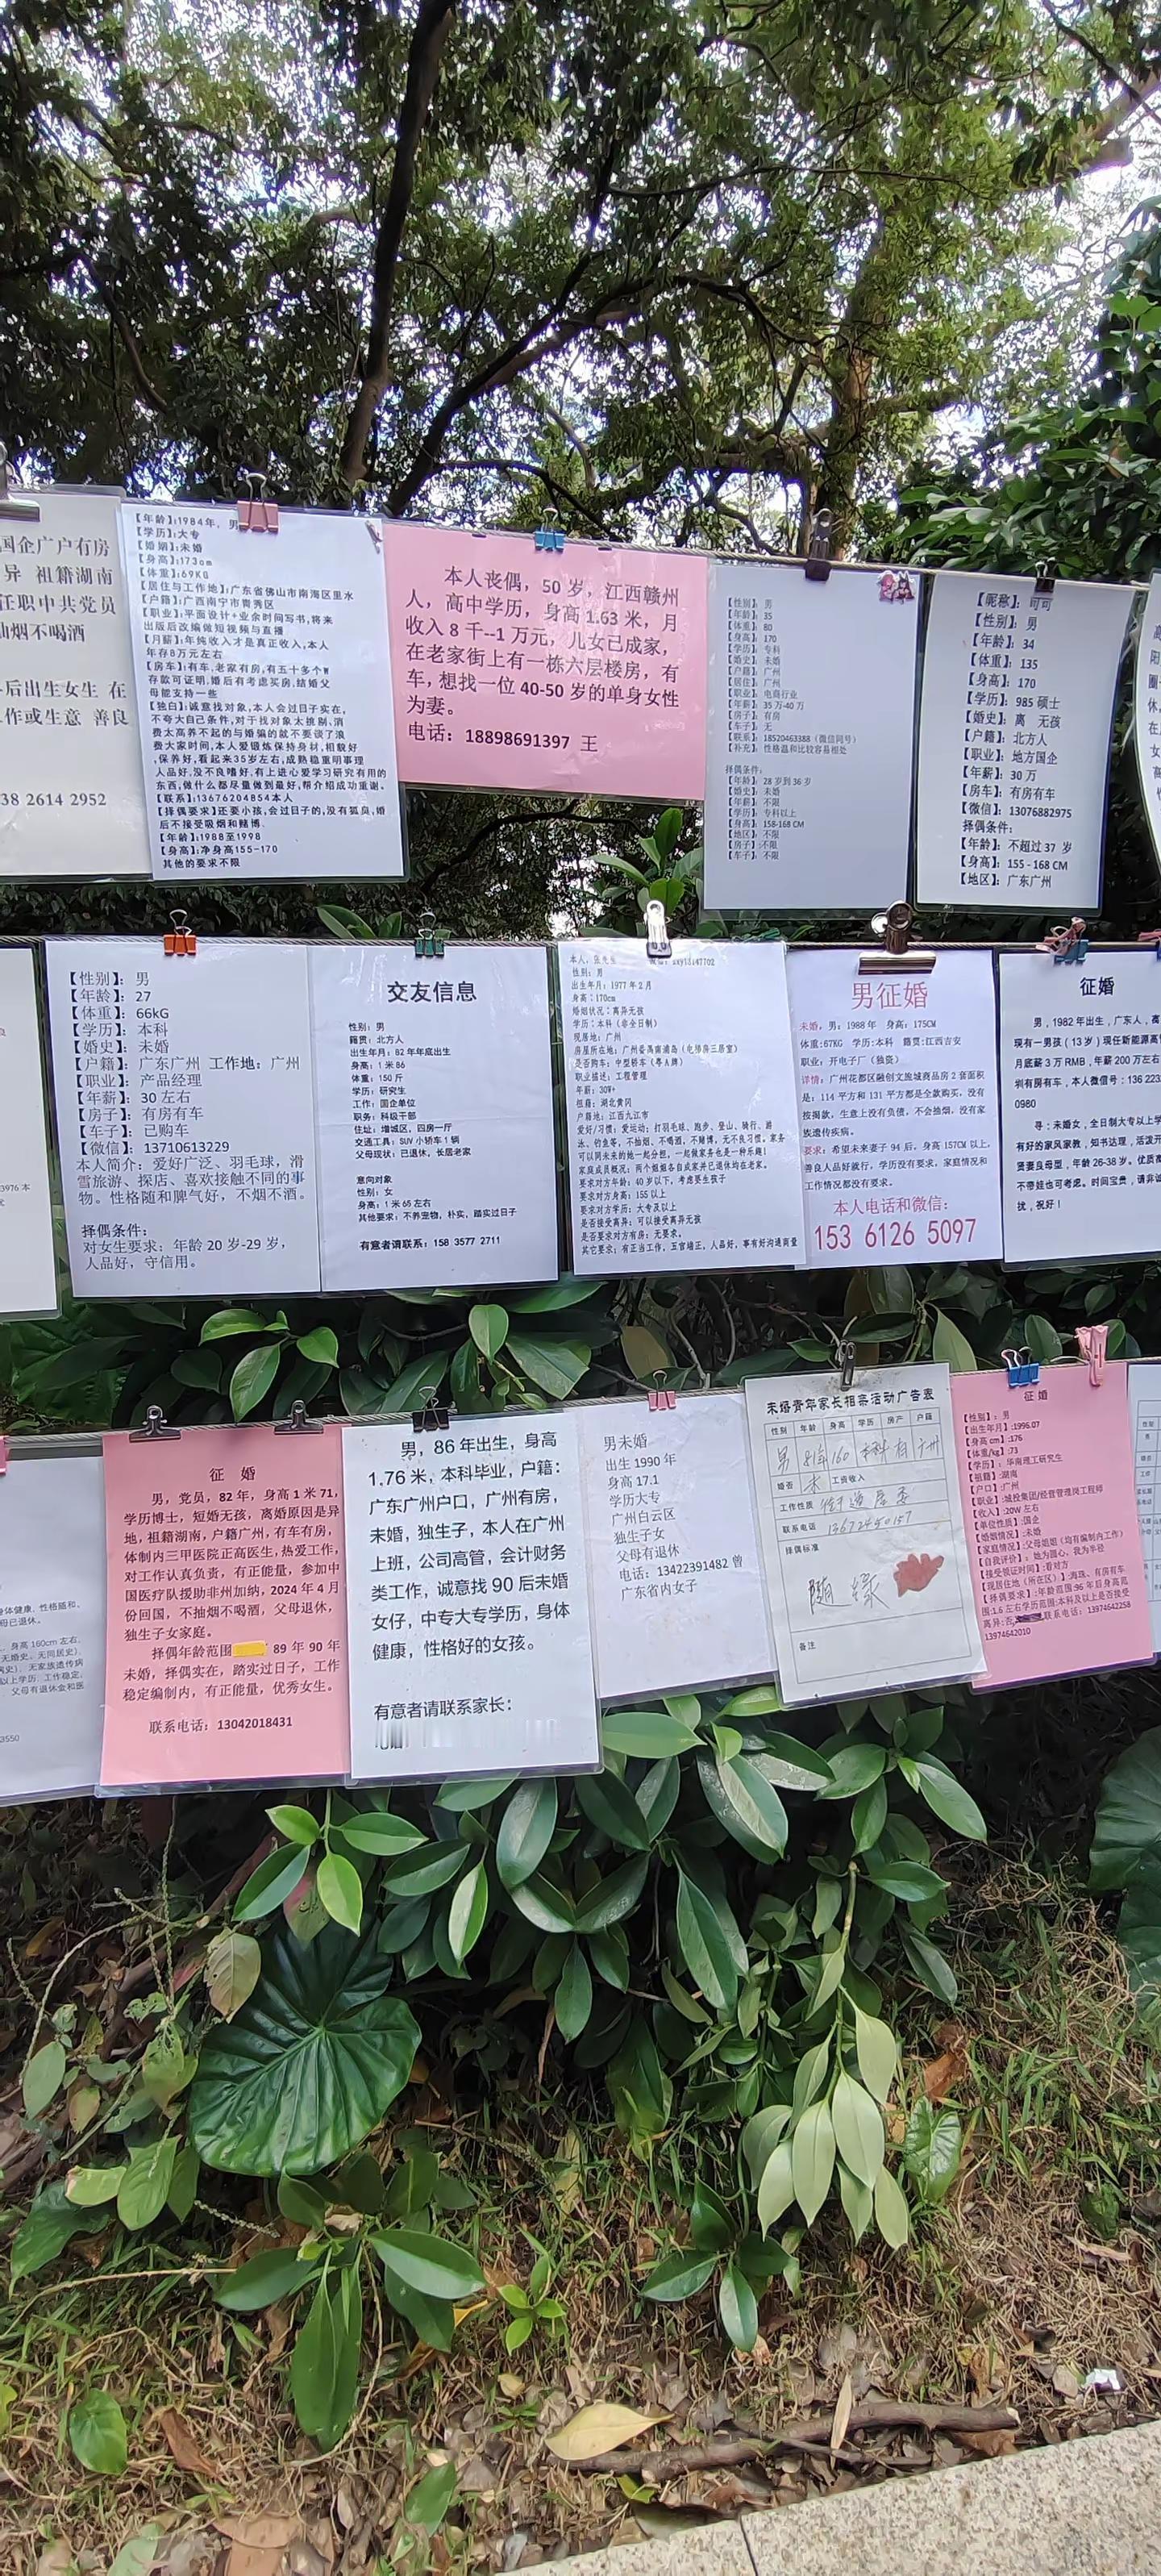 国企广户有房
异 祖籍湖南
任职中共党员
抽烟不喝酒
后出生女生 在
工作或生意 善良
38 2614 2952
【年龄】:1984年，男
【学历】:大专
【婚姻】:未婚
【身高】:173cm
【体重】:69KG
【居住与工作地】:广东省佛山市南海区里水
【户籍】:广西南宁市青秀区
【职业】:平面设计+业余时间写书,将来
出版后改编做短视频与直播
【月薪】:年纯收入才是真正收入,本人
年存8万元左右
【房车】:有车,老家有房,有五十多个W
存款可证明,婚后有考虑买房,结婚父
母能支持一些
【独白】:诚意找对象,本人会过日子实在,
不夸大自己条件,对于找对象太挑剔,消
费太高养不起的与婚骗的就不要谈了浪
费大家时间,本人爱锻炼保持身材,相貌好
,保养好,看起来35岁左右,成熟稳重明事理
人品好,没不良嗜好,有上进心爱学习研究有用的
东西,做什么都尽量做到最好,帮介绍成功重谢。
【联系】:13676204854本人
【择偶要求】还要小孩,会过日子的,没有狐臭,婚
后不接受吸烟和赌博
【年龄】:1988至1998
【身高】:净身高155-170
其他的要求不限
本人丧偶，50 岁，江西赣州
人，高中学历，身高 1.63 米，月
收入 8 千--1 万元，儿女已成家，
在老家街上有一栋六层楼房，有
车，想找一位 40-50 岁的单身女性
为妻。
电话：18898691397 王
【性别】：男
【年龄】：35
【体重】：80
【身高】：170
【学历】：专科
【婚史】：未婚
【户籍】：广州
【居住】：广州
【职业】：电商行业
【年薪】：35 万-40 万
【房子】：有房
【车子】：无
【联系】：18520463388（微信同号）
【补充】：性格温和比较容易相处
择偶条件：
【年龄】：28 岁到 36 岁
【婚史】：未婚
【年薪】：不限
【学历】：专科以上
【身高】：158-168 CM
【地区】：不限
【房子】：不限
【车子】：不限
【昵称】：可可
【性别】：男
【年龄】：34
【体重】：135
【身高】：170
【学历】：985 硕士
【婚史】：离 无孩
【户籍】：北方人
【职业】：地方国企
【年薪】：30 万
【房车】：有房有车
【微信】：13076882975
择偶条件：
【年龄】：不超过 37 岁
【身高】：155 - 168 CM
【地区】：广东广州
【性别】：男
【年龄】：27
【体重】：66kG
【学历】：本科
【婚史】：未婚
【户籍】：广东广州 工作地：广州
【职业】：产品经理
【年薪】：30 左右
【房子】：有房有车
【车子】：已购车
【微信】：13710613229
本人简介：爱好广泛、羽毛球，滑
雪旅游、探店、喜欢接触不同的事
物。性格随和脾气好，不烟不酒。
择偶条件：
对女生要求：年龄 20 岁-29 岁，
人品好，守信用。
交友信息
性别：男
籍贯：北方人
出生年月：82 年年底出生
身高：1 米 86
体重：150 斤
学历：研究生
工作：国企单位
职务：科级干部
住址：增城区，四房一厅
交通工具：SUV 小轿车 1 辆
父母现状：已退休，长居老家
意向对象
性别：女
身高：1 米 65 左右
其他要求：不养宠物，朴实，踏实过日子
有意者请联系：158 3577 2711
性别：男
出生年月：1977 年 2 月
身高：170cm
婚姻状况：离异无孩
学历：本科（非全日制）
现居地：广州
房屋所在地：广州番禺南浦岛（电梯房三居室）
是否购车：中型轿车（粤A牌）
职业描述：工程管理
年薪：30W+
祖籍：湖北黄冈
户籍地：江西九江市
爱好/习惯：爱运动：打羽毛球、跑步、登山、骑行、游
泳、钓鱼等，不抽烟、不喝酒，不赌博，无不良习惯。家务
可以同未来的她一起分担，一起做家务也是一种乐趣！
家庭成员概况：两个姐姐各自成家并已退休均在老家。
要求对方年龄：40 岁以下，考虑要生孩子
要求对方身高：155 以上
要求对方学历：大专及以上
是否接受离异：可以接受离异无孩
是否要求对方有房：无要求。
其它要求：有正当工作，五官端正，人品好，事有好沟通商量
男征婚
未婚，男：1988 年 身高：175CM
体重:67KG 学历:本科 籍贯:江西吉安
职业：开电子厂（独资）
详情：广州花都区融创文旅城商品房 2 套面积
是：114 平方和 131 平方都是全款购买，没有
按揭款，生意上没有负债，不会抽烟，没有家
族遗传疾病。
要求：希望未来妻子 94 后，身高 157CM 以上，
善良人品好就行，学历没有要求，家庭情况和
工作情况都没有要求。
本人电话和微信：
153 6126 5097
征婚
男，1982 年出生，广东人，高
现有一男孩（13 岁）现任新能源高
月底薪 3 万 RMB，年薪 200 万左右
圳有房有车，本人微信号：136 223
0980
寻：未婚女，全日制大专以上学
有好的家风家教，知书达理，活泼开
贤妻良母型，年龄 26-38 岁。优质离
不带娃也可考虑。时间宝贵，请非诚
扰，祝好！
征 婚
男，党员，82 年，身高 1 米 71，
学历博士，短婚无孩，离婚原因是异
地，祖籍湖南，户籍广州，有车有房，
体制内三甲医院正高医生，热爱工作，
对工作认真负责，有正能量，参加中
国医疗队援助非洲加纳，2024 年 4 月
份回国，不抽烟不喝酒，父母退休，
独生子女家庭。
择偶年龄范围 89 年 90 年
未婚，择偶实在，踏实过日子，工作
稳定编制内，有正能量，优秀女生。
联系电话：13042018431
男，86 年出生，身高
1.76 米，本科毕业，户籍：
广东广州户口，广州有房，
未婚，独生子，本人在广州
上班，公司高管，会计财务
类工作，诚意找 90 后未婚
女仔，中专大专学历，身体
健康，性格好的女孩。
有意者请联系家长：
男未婚
出生 1990 年
身高 17.1
学历大专
广州白云区
独生子女
父母有退休
电话：13422391482 曾
广东省内女子
未婚青年家长相亲活动广告表
性别 年龄 身高 学历 房产 户籍
男 81年 160 本科 有 广州
婚否 未 工资收入
工作性质 街道居委
联系电话
择偶标准
随缘
备注
征 婚
【性别】：男
【出生年月】:1996.07
【身高 cm】:176
【体重/kg】:73
【学历】：华南理工研究生
【祖籍】:湖南
【户口】:广州
【职业】:城投集团/经营管理岗工程师
【收入】:20W 左右
【单位性质】:国企
【婚姻情况】:未婚
【家庭情况】:父母姐姐（均有编制内工作）
【自我评价】：她为圆心，我为半径
【接受领证时间】:看对方
【现居住地（所在区）】:海珠、有房有车
【择偶要求】:年龄范围:96 年后身高范
围:1.6 左右学历范围:本科及以上是否接受
离异:否 联系电话：13974642258
13974642010